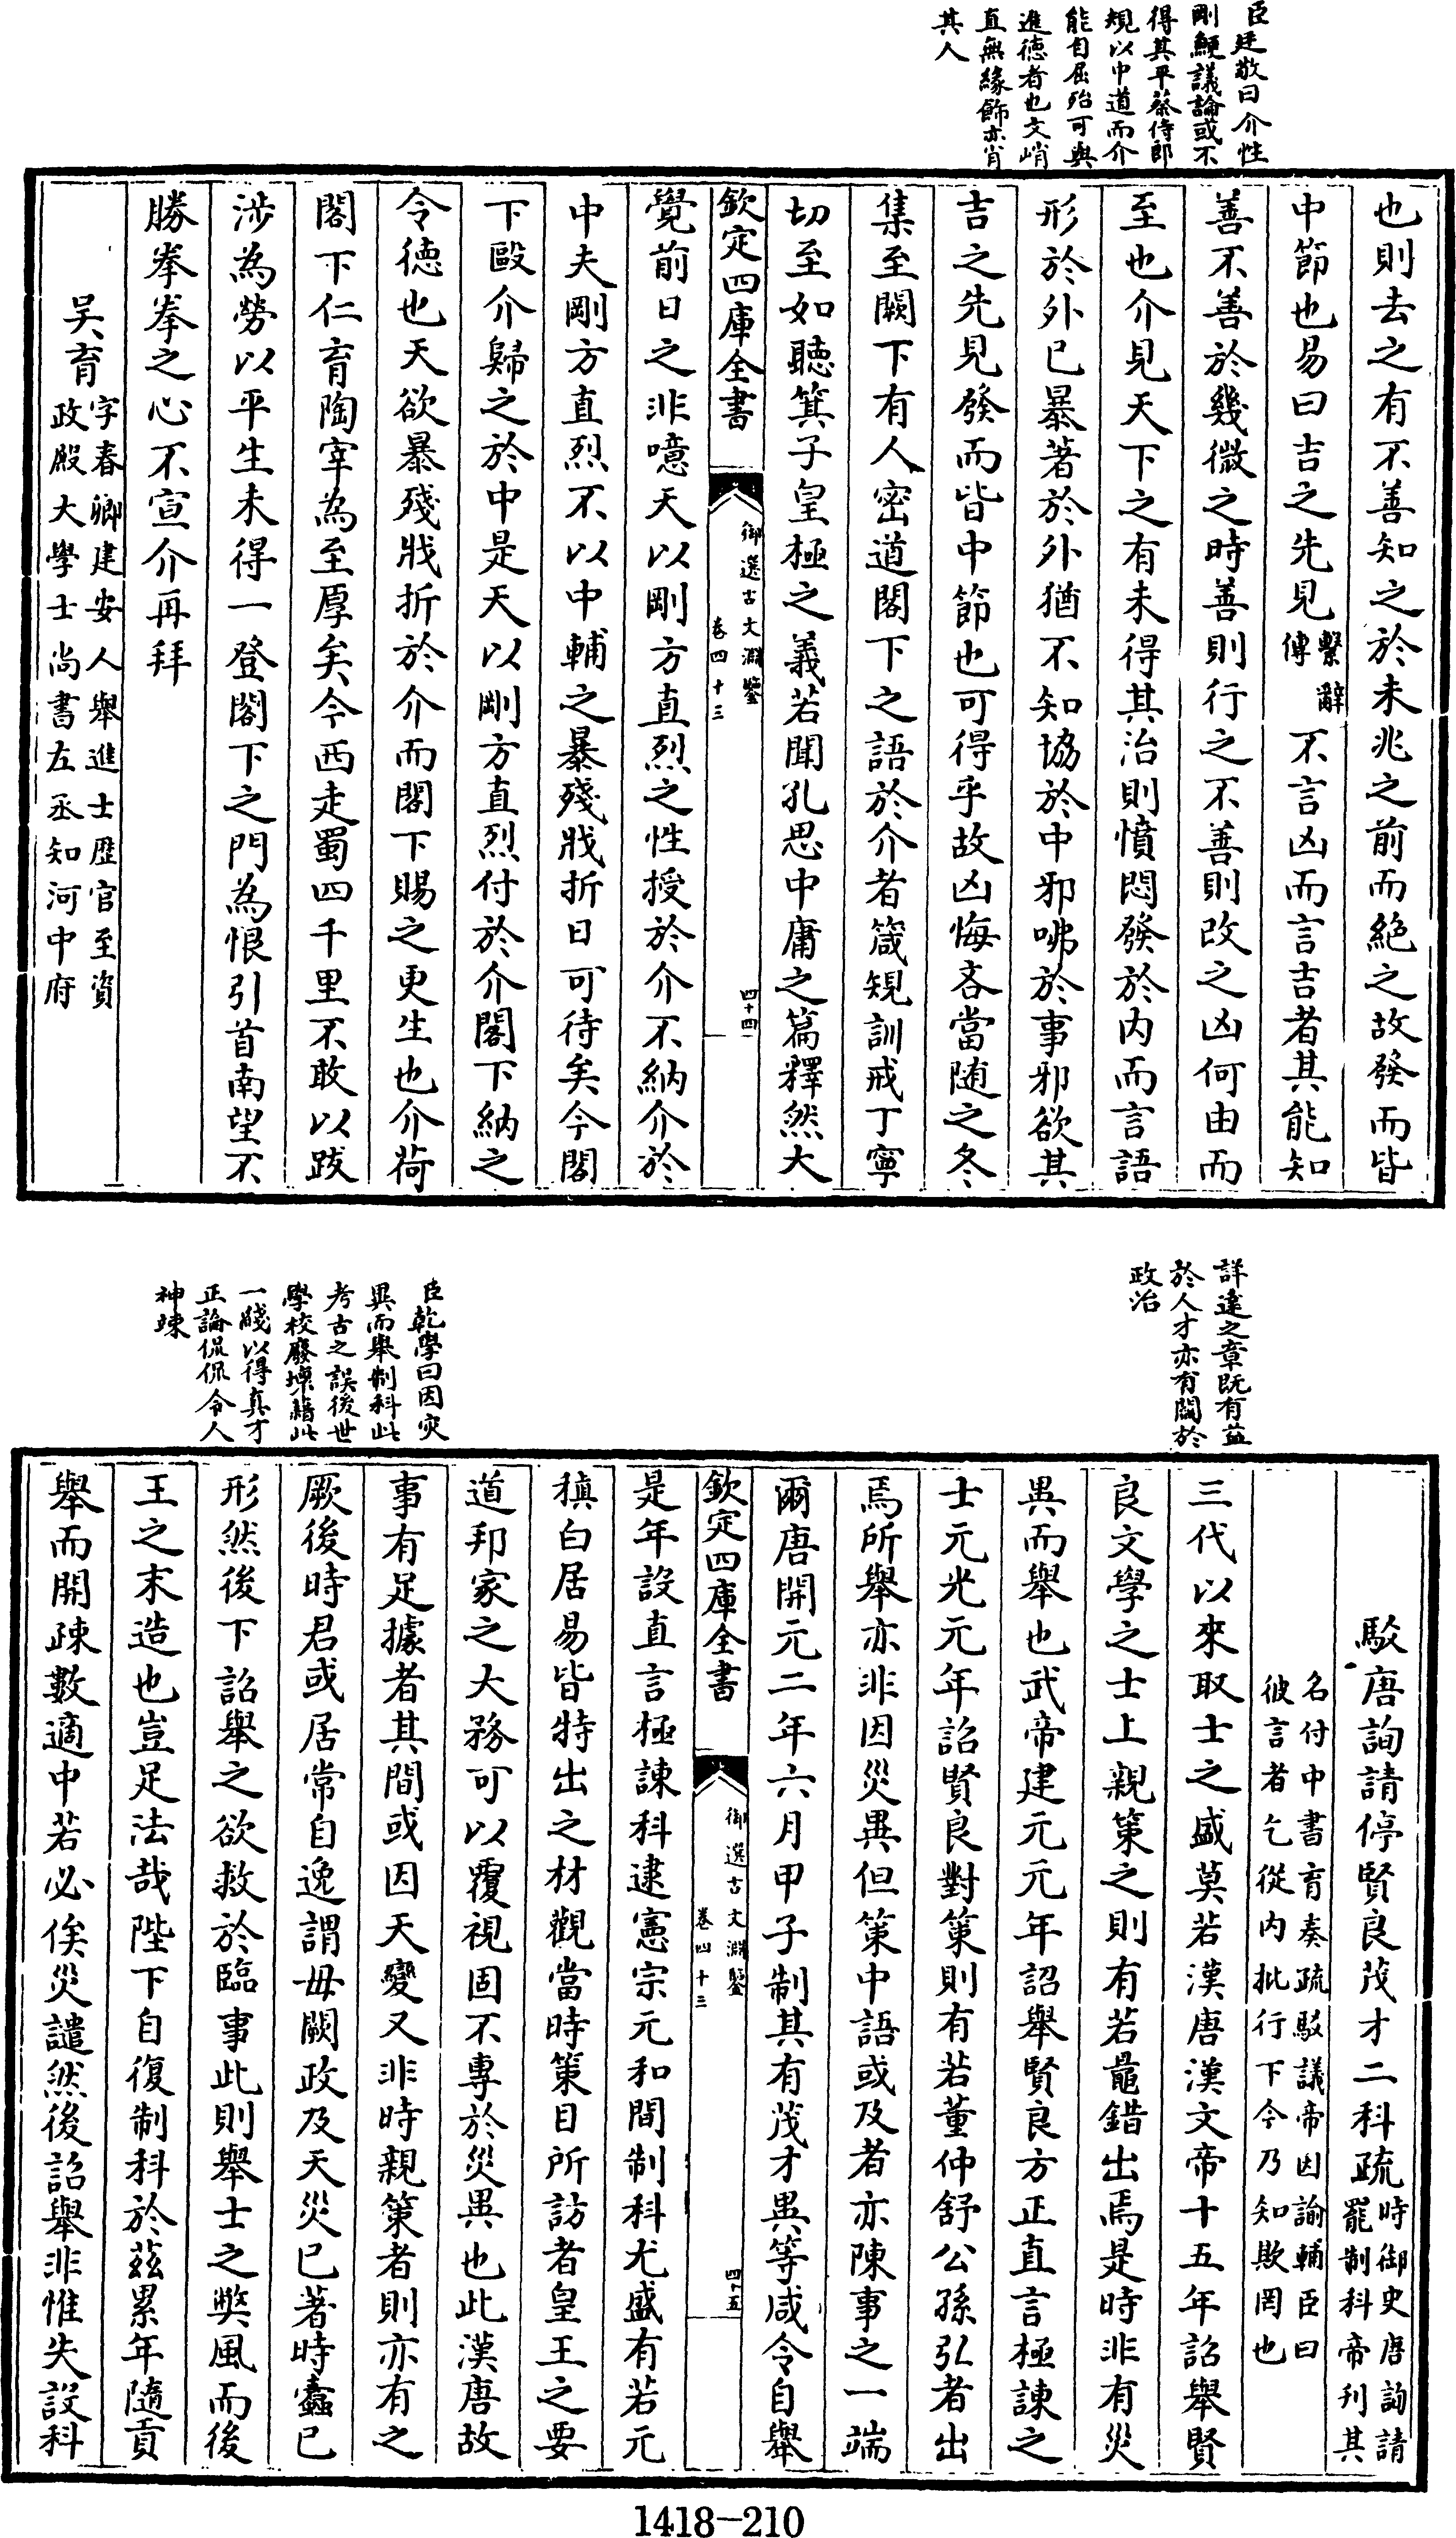 臣廷敬曰介性
剛鯁議論或不
得其平蔡侍郎
規以中道而介
能自屈殆可與
進德者也文峭
直無緣飾亦肖
其人
也則去之有不善知之於未兆之前而絶之故發而皆
中節也易曰吉之先見繫辭傳不言凶而言吉者其能知
善不善於幾微之時善則行之不善則改之凶何由而
至也介見天下之有未得其治則憤悶發於内而言語
形於外已暴著於外猶不知協於中邪咈於事邪欲其
吉之先見發而皆中節也可得乎故凶悔吝當随之冬
集至闕下有人密道閣下之語於介者箴規訓戒丁寧
切至如聽箕子皇極之義若聞孔思中庸之篇釋然大
欽定四庫全書
御選古文淵鑒
卷四十三
四十四
覺前日之非噫天以剛方直烈之性授於介不納介於
中夫剛方直烈不以中輔之暴殘戕折日可待矣今閣
下毆介歸之於中是天以剛方直烈付於介閣下納之
令德也天欲暴殘戕折於介而閣下賜之更生也介荷
閣下仁育陶宰為至厚矣今西走蜀四千里不敢以跋
涉為勞以平生未得一登閣下之門為恨引首南望不
勝拳拳之心不宣介再拜
吴育字春卿建安人舉進士歴官至資
政殿大學士尚書左丞知河中府
詳遠之章既有益
於人才亦有關於
政治
臣乾學曰因灾
異而舉制科此
考古之誤後世
學校廢壞藉此
一賤以得真才
正論侃侃令人
神竦
駁唐詢請停賢良茂才二科疏時御史唐詢請
罷制科帝刋其
名付中書育奏疏駁議帝因諭輔臣曰
彼言者乞從内批行下今乃知欺罔也
三代以來取士之盛莫若漢唐漢文帝十五年詔舉賢
良文學之士上親策之則有若鼂錯出焉是時非有災
異而舉也武帝建元元年詔舉賢良方正直言極諫之
士元光元年詔賢良對策則有若董仲舒公孫弘者出
焉所舉亦非因災異但策中語或及者亦陳事之一端
爾唐開元二年六月甲子制其有茂才異等咸令自舉
欽定四庫全書
御選古文淵鑒
卷四十三
四十五
是年設直言極諫科逮憲宗元和間制科尤盛有若元
稹白居易皆特出之材觀當時策目所訪者皇王之要
道邦家之大務可以覆視固不專於災異也此漢唐故
事有足據者其間或因天變又非時親策者則亦有之
厥後時君或居常自逸謂毋闕政及天災已著時蠧已
形然後下詔舉之欲救於臨事此則舉士之獘風而後
王之末造也豈足法哉陛下自復制科於茲累年隨貢
舉而開疎數適中若必俟災譴然後詔舉非惟失設科
1418-210